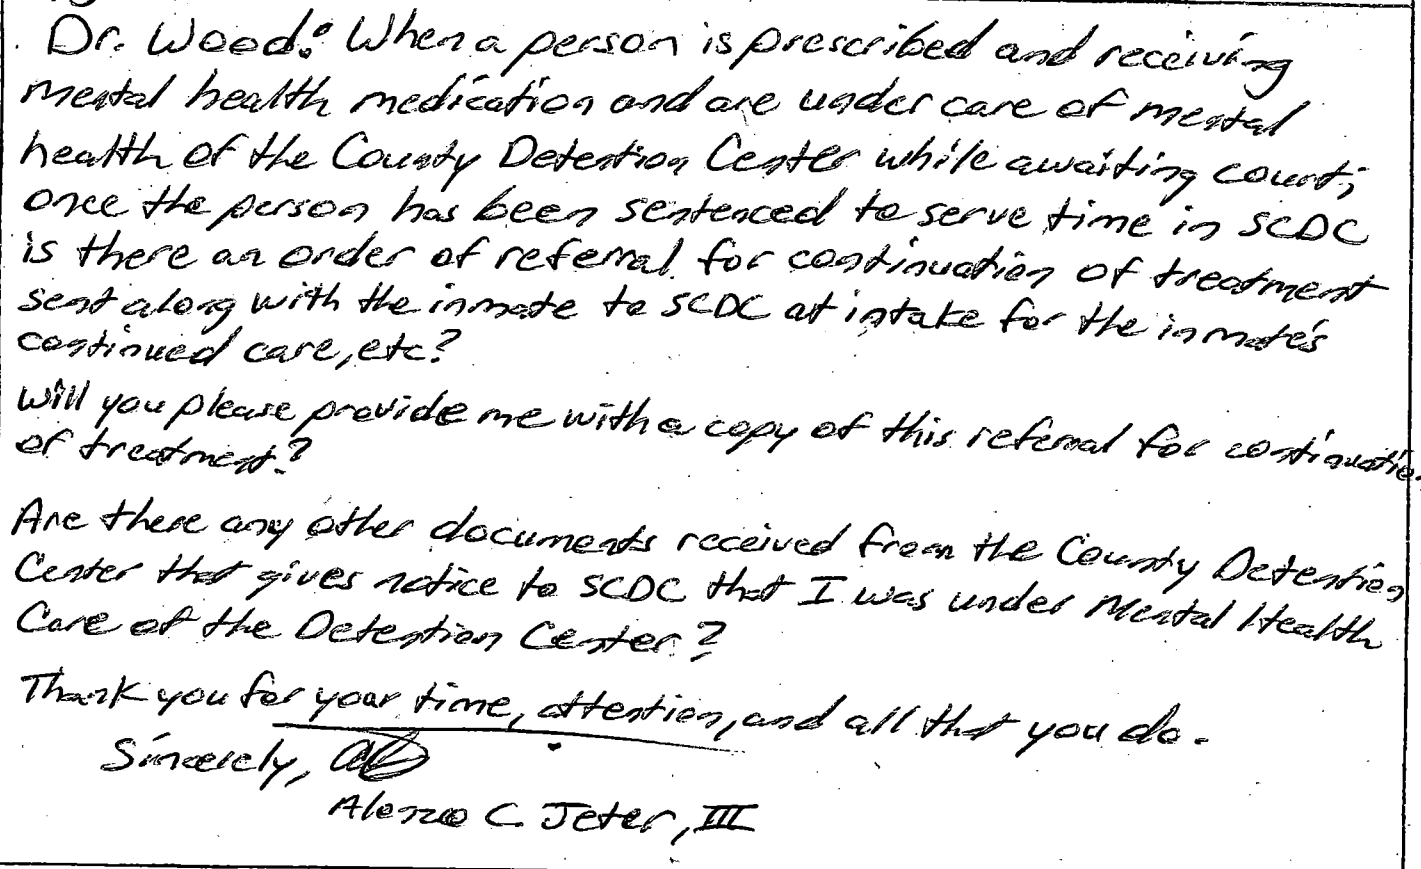 Dr. Wood: When a person is prescribed and receiving
mental health medication and are under care of mental
health of the County Detention Center while awaiting court;
once the person has been sentenced to serve time in SCDC
is there an order of referral for continuation of treatment
sent along with the inmate to SCDC at intake for the inmate's
continued care, etc?
Will you please provide me with a copy of this referral for continuation
of treatment?
Are there any other documents received from the County Detention
Center that gives notice to SCDC that I was under Mental Health
Care of the Detention Center?
Thank you for your time, attention, and all that you do.
Sincerely,
Alonzo C. Jeter, III